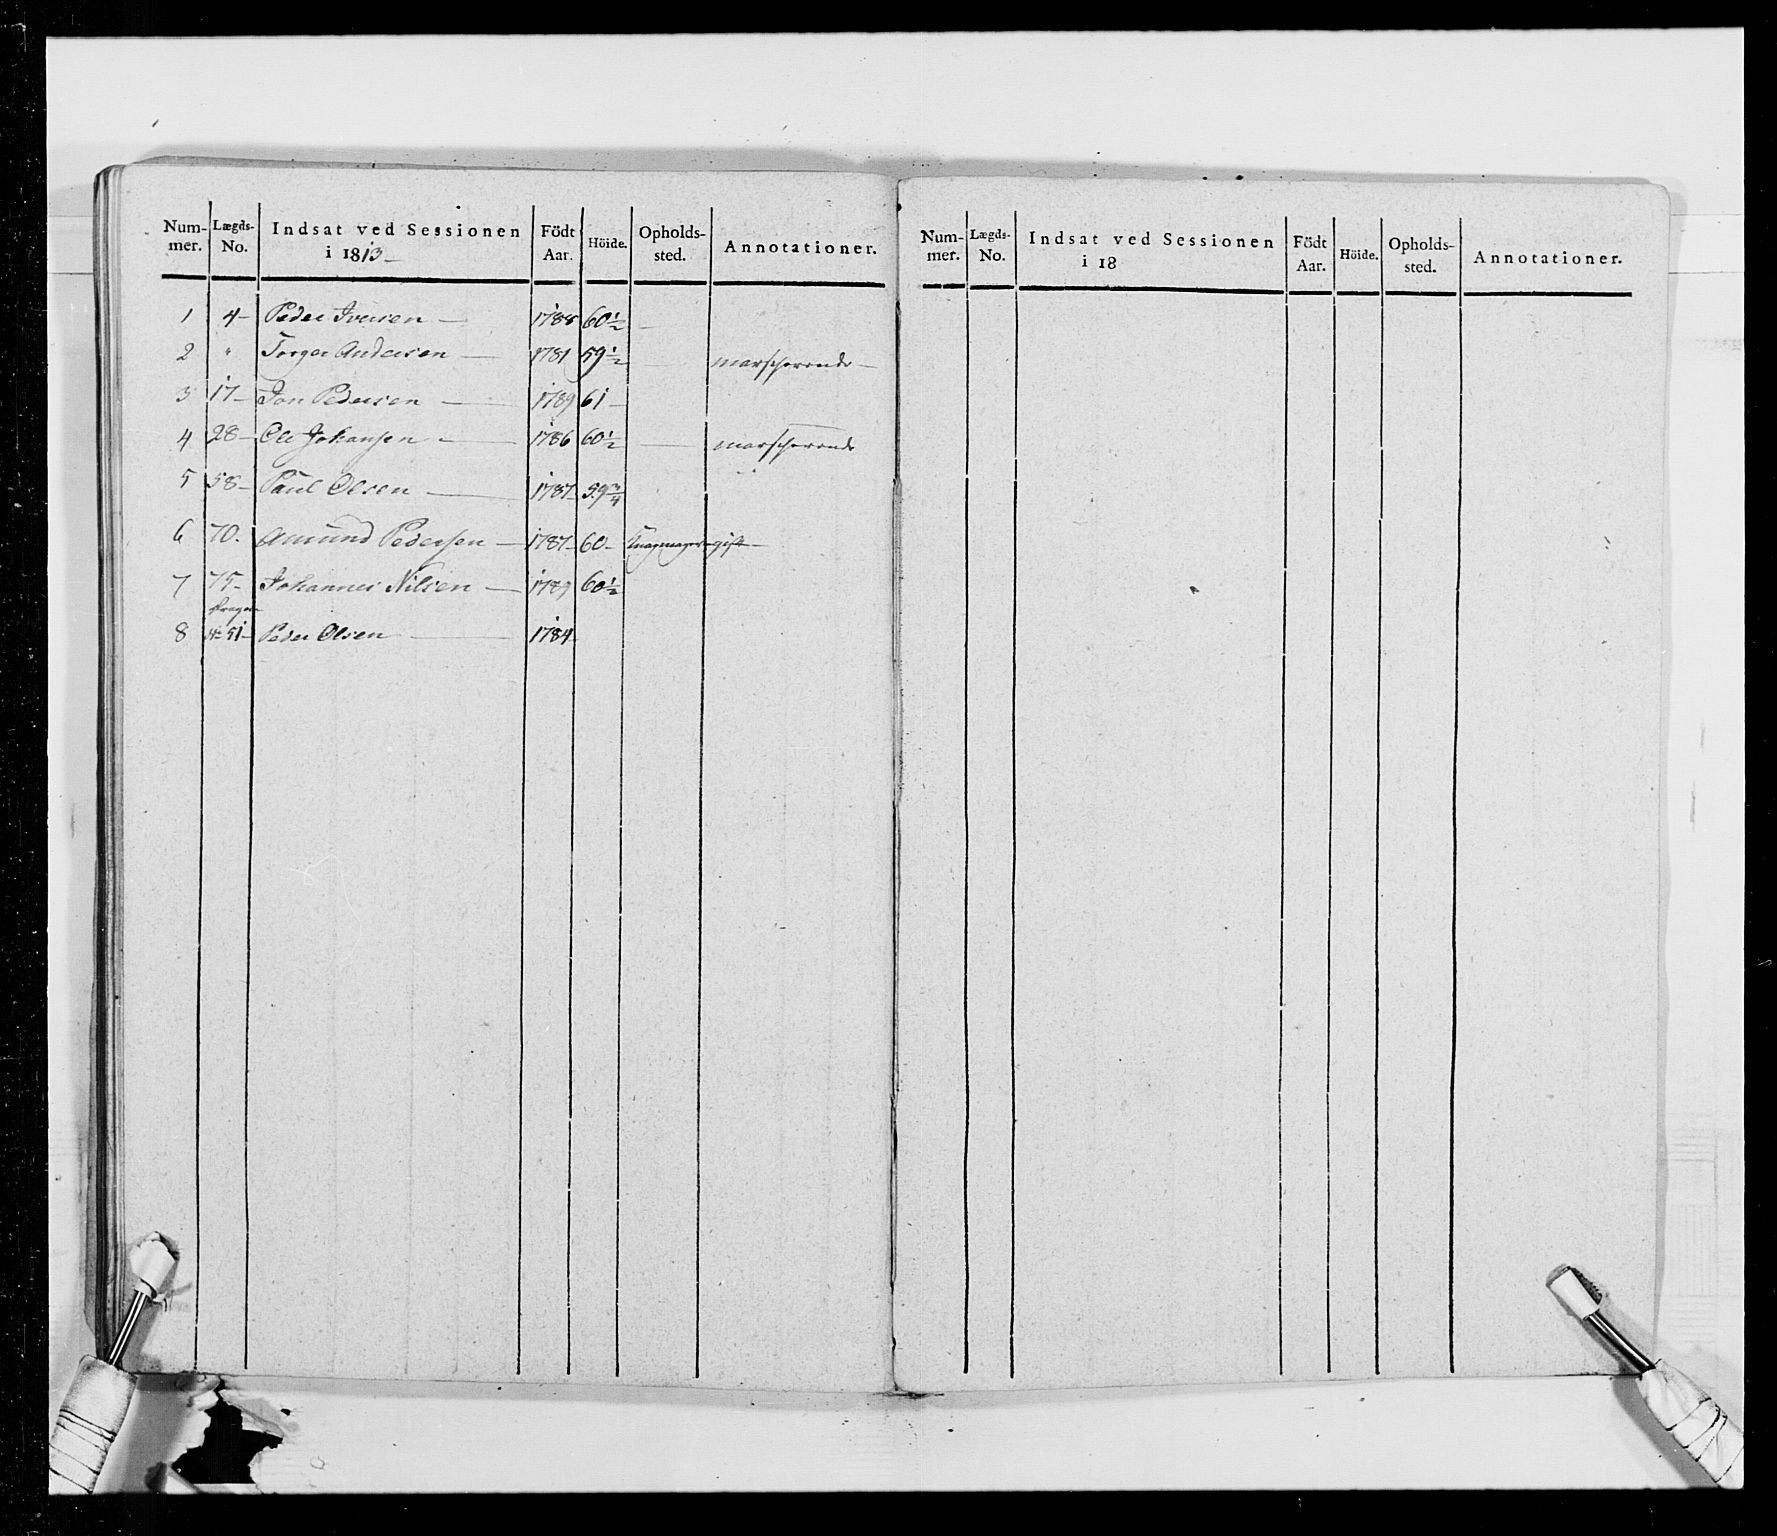 Num- Lægds- Indsat ved Sessionen Födt Höide. Opholds- Annotationer.
mer. No. i 1813 Aar. sted.
1 4 Peder Iversen 1788 60 1/2
2 " Torger Andersen 1781 59 1/2 marscherende
3 17 Jon Pedersen 1789 61
4 28 Ole Johansen 1786 60 1/2 marscherende
5 58 Paul Olsen 1787 59 3/4
6 70. Amund Pedersen 1787 60 gift
7 75 Johannes Nilsen 1789 60 1/2
Dragon
8 No 51 Peder Olsen 1784
Num- Lægds- Indsat ved Sessionen Födt Höide. Opholds- Annotationer.
mer. No. i 18 Aar. sted.